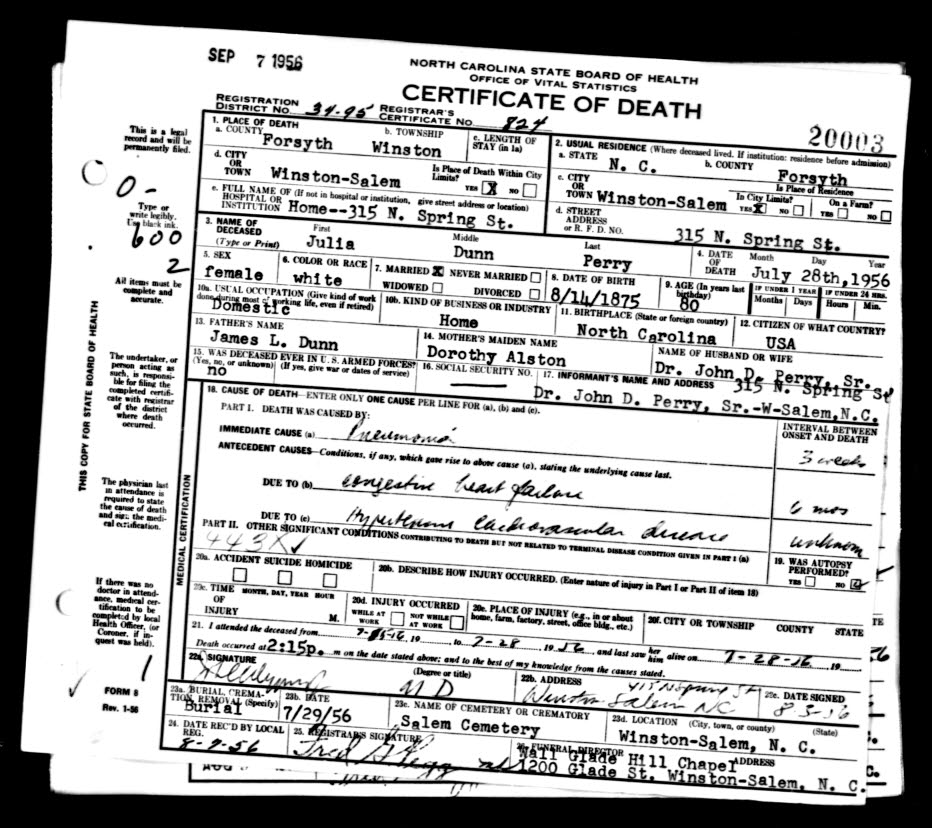 SEP 7 1956
NORTH CAROLINA STATE BOARD OF HEALTH
OFFICE OF VITAL STATISTICS
CERTIFICATE OF DEATH
REGISTRATION DISTRICT No. 34-95 REGISTRAR'S CERTIFICATE No. 824
20003
This is a legal record and will be permanently filed.
0-
Type or write legibly. Use black ink.
600
2
All items must be complete and accurate.
THIS COPY FOR STATE BOARD OF HEALTH
The undertaker, or person acting as such, is responsible for filing the completed certificate with registrar of the district where death occurred.
The physician last in attendance is required to state the cause of death and sign the medical certification.
If there was no doctor in attendance, medical certification to be completed by local Health Officer, (or Coroner, if inquest was held).
1
FORM 8
Rev. 1-56
1. PLACE OF DEATH
a. COUNTY Forsyth
b. TOWNSHIP Winston
c. LENGTH OF STAY (in 1a)
2. USUAL RESIDENCE (Where deceased lived. If institution: residence before admission)
a. STATE N. C.
b. COUNTY Forsyth
d. CITY OR TOWN Winston-Salem
Is Place of Death Within City Limits? YES X NO
c. CITY OR TOWN Winston-Salem
Is Place of Residence
In City Limits? YES X NO
On a Farm? YES NO
e. FULL NAME OF (If not in hospital or institution, give street address or location) HOSPITAL OR INSTITUTION Home--315 N. Spring St.
d. STREET ADDRESS or R. F. D. NO. 315 N. Spring St.
3. NAME OF DECEASED (Type or Print)
First Julia
Middle Dunn
Last Perry
4. DATE OF DEATH Month Day Year July 28th,1956
5. SEX female
6. COLOR OR RACE white
7. MARRIED X NEVER MARRIED
WIDOWED DIVORCED
8. DATE OF BIRTH 8/14/1875
9. AGE (In years last birthday) 80
IF UNDER 1 YEAR Months Days
IF UNDER 24 HRS. Hours Min.
10a. USUAL OCCUPATION (Give kind of work done during most of working life, even if retired) Domestic
10b. KIND OF BUSINESS OR INDUSTRY Home
11. BIRTHPLACE (State or foreign country) North Carolina
12. CITIZEN OF WHAT COUNTRY? USA
13. FATHER'S NAME James L. Dunn
14. MOTHER'S MAIDEN NAME Dorothy Alston
NAME OF HUSBAND OR WIFE Dr. John D. Perry, Sr.
15. WAS DECEASED EVER IN U. S. ARMED FORCES? (Yes, no, or unknown) (If yes, give war or dates of service) no
16. SOCIAL SECURITY NO.
17. INFORMANT'S NAME AND ADDRESS 315 N. Spring St
Dr. John D. Perry, Sr.-W-Salem,N.C.
18. CAUSE OF DEATH—ENTER ONLY ONE CAUSE PER LINE FOR (a), (b) and (c).
PART I. DEATH WAS CAUSED BY:
INTERVAL BETWEEN ONSET AND DEATH
IMMEDIATE CAUSE (a) Pneumonia
3 weeks
ANTECEDENT CAUSES—Conditions, if any, which gave rise to above cause (a), stating the underlying cause last.
DUE TO (b) Congestive heart failure
6 mos
DUE TO (c) Hypertensive Cardiovascular disease
unknown
PART II. OTHER SIGNIFICANT CONDITIONS CONTRIBUTING TO DEATH BUT NOT RELATED TO TERMINAL DISEASE CONDITION GIVEN IN PART I (a)
443X
19. WAS AUTOPSY PERFORMED? YES NO
MEDICAL CERTIFICATION
20a. ACCIDENT SUICIDE HOMICIDE
20b. DESCRIBE HOW INJURY OCCURRED. (Enter nature of injury in Part I or Part II of item 18)
20c. TIME OF INJURY MONTH, DAY, YEAR HOUR M.
20d. INJURY OCCURRED
WHILE AT WORK NOT WHILE AT WORK
20e. PLACE OF INJURY (e.g., in or about home, farm, factory, street, office bldg., etc.)
20f. CITY OR TOWNSHIP COUNTY STATE
21. I attended the deceased from 19 to 7-28 19 56, and last saw her him alive on 7-28-56 19
Death occurred at 2:15p. m on the date stated above; and to the best of my knowledge from the causes stated.
22a. SIGNATURE (Degree or title) M D
22b. ADDRESS Winston Salem NC
22c. DATE SIGNED 8-3-56
23a. BURIAL, CREMATION, REMOVAL (Specify) Burial
23b. DATE 7/29/56
23c. NAME OF CEMETERY OR CREMATORY Salem Cemetery
23d. LOCATION (City, town, or county) (State) Winston-Salem, N. C.
24. DATE REC'D BY LOCAL REG. 8-7-56
25. REGISTRAR'S SIGNATURE
26. FUNERAL DIRECTOR ADDRESS
Wall Glade Hill Chapel
1200 Glade St. Winston-Salem, N. C.